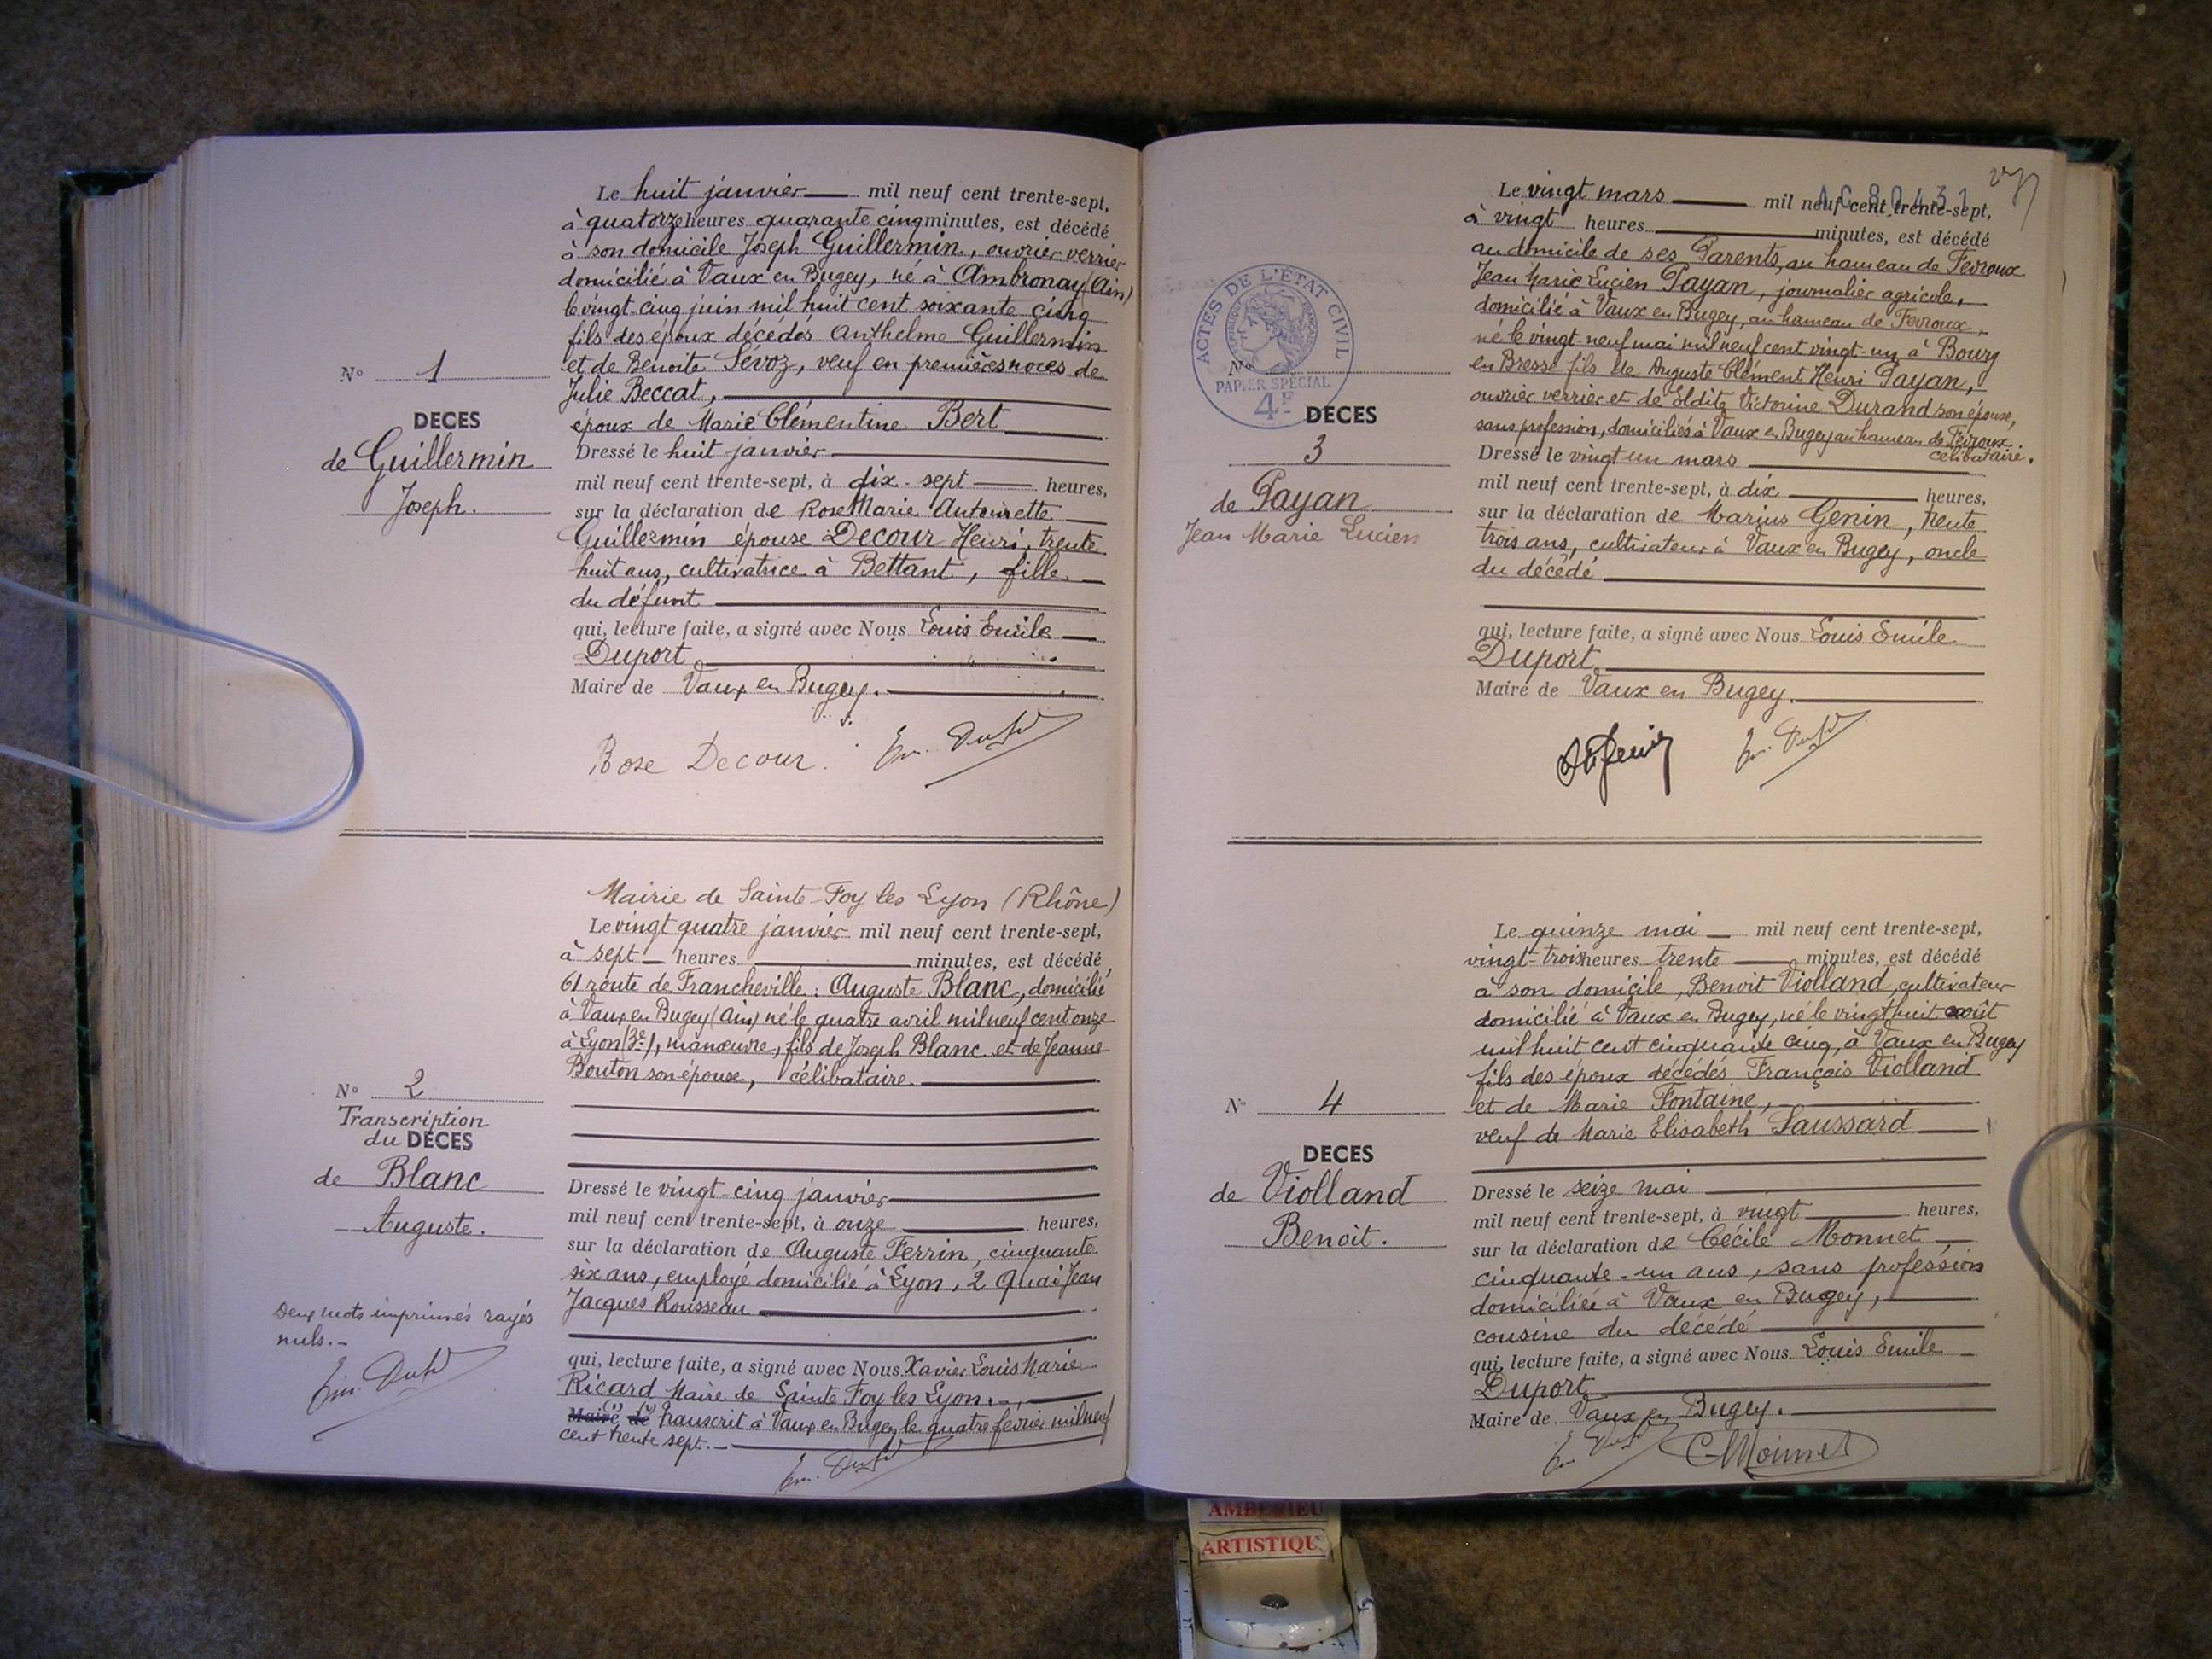 Le huit janvier mil neuf cent trente-sept,
à quatorze heures quarante cinq minutes, est décédé
à son domicile Joseph Guillermin, ouvrier verrier
domicilié à Vaux en Bugey, né à Ambronay (Ain)
le vingt-cinq juin mil huit cent soixante cinq
fils des époux décédés Anthelme Guillermin
et de Benoite Sévoz, veuf en premières noces de
Julie Beccat,
époux de Marie Clémentine Bert
N° 1
DECES
de Guillermin
Joseph.
Dressé le huit janvier
mil neuf cent trente-sept, à dix-sept heures,
sur la déclaration de Rose Marie Antoinette
Guillermin épouse Decour Henri, trente
huit ans, cultivatrice à Bettant, fille
du défunt
qui, lecture faite, a signé avec Nous Louis Emile
Duport
Maire de Vaux en Bugey.
Rose Decour.
Mairie de Sainte-Foy les Lyon (Rhône)
Le vingt quatre janvier mil neuf cent trente-sept,
à sept heures minutes, est décédé,
61 route de Francheville : Auguste Blanc, domicilié
à Vaux en Bugey (Ain) né le quatre avril mil neuf cent onze
à Lyon (3e), manœuvre, fils de Joseph Blanc et de Jeanne
Bouton son épouse, célibataire.
N° 2
Transcription
du DECES
de Blanc
Auguste.
Deux mots imprimés rayés
nuls.-
Dressé le vingt-cinq janvier
mil neuf cent trente-sept, à onze heures,
sur la déclaration de Auguste Ferrin, cinquante
six ans, employé domicilié à Lyon, 2 Quai Jean
Jacques Rousseau
qui, lecture faite, a signé avec Nous Xavier Louis Marie
Ricard Maire de Sainte Foy les Lyon.-,
Maire de transcrit à Vaux en Bugey le quatre février mil neuf
cent trente sept.-
Le vingt mars mil neuf cent trente-sept,
à vingt heures minutes, est décédé
au domicile de ses Parents, au hameau de Fevroux
Jean Marie Lucien Payan, journalier agricole,
domicilié à Vaux en Bugey, au hameau de Fevroux,
né le vingt-neuf mai mil neuf cent vingt-un à Bourg
en Bresse fils de Auguste Clément Henri Payan,
ouvrier verrier et de Eldita Victorine Durand son épouse,
sans profession, domiciliés à Vaux en Bugey au hameau de Fevroux.
célibataire.
ACTES DE L'ÉTAT CIVIL
PAPIER SPÉCIAL
4F
N°
DECES
3
de Payan
Jean Marie Lucien
Dressé le vingt un mars
mil neuf cent trente-sept, à dix heures,
sur la déclaration de Marius Genin, trente
trois ans, cultivateur à Vaux en Bugey, oncle
du décédé
qui, lecture faite, a signé avec Nous Louis Emile
Duport
Maire de Vaux en Bugey.
Le quinze mai mil neuf cent trente-sept,
vingt-trois heures trente minutes, est décédé
à son domicile, Benoit Violland, cultivateur
domicilié à Vaux en Bugey, né le vingt huit août
mil huit cent cinquante cinq, à Vaux en Bugey
fils des époux décédés François Violland
et de Marie Fontaine,
veuf de Marie Elisabeth Saussard
N° 4
DECES
de Violland
Benoit.
Dressé le seize mai
mil neuf cent trente-sept, à vingt heures,
sur la déclaration de Cécile Monnet,
cinquante-un ans, sans profession
domiciliée à Vaux en Bugey,
cousine du décédé
qui, lecture faite, a signé avec Nous Louis Emile
Duport
Maire de Vaux en Bugey.
C Monnet
AMBERIEU
ARTISTIQU